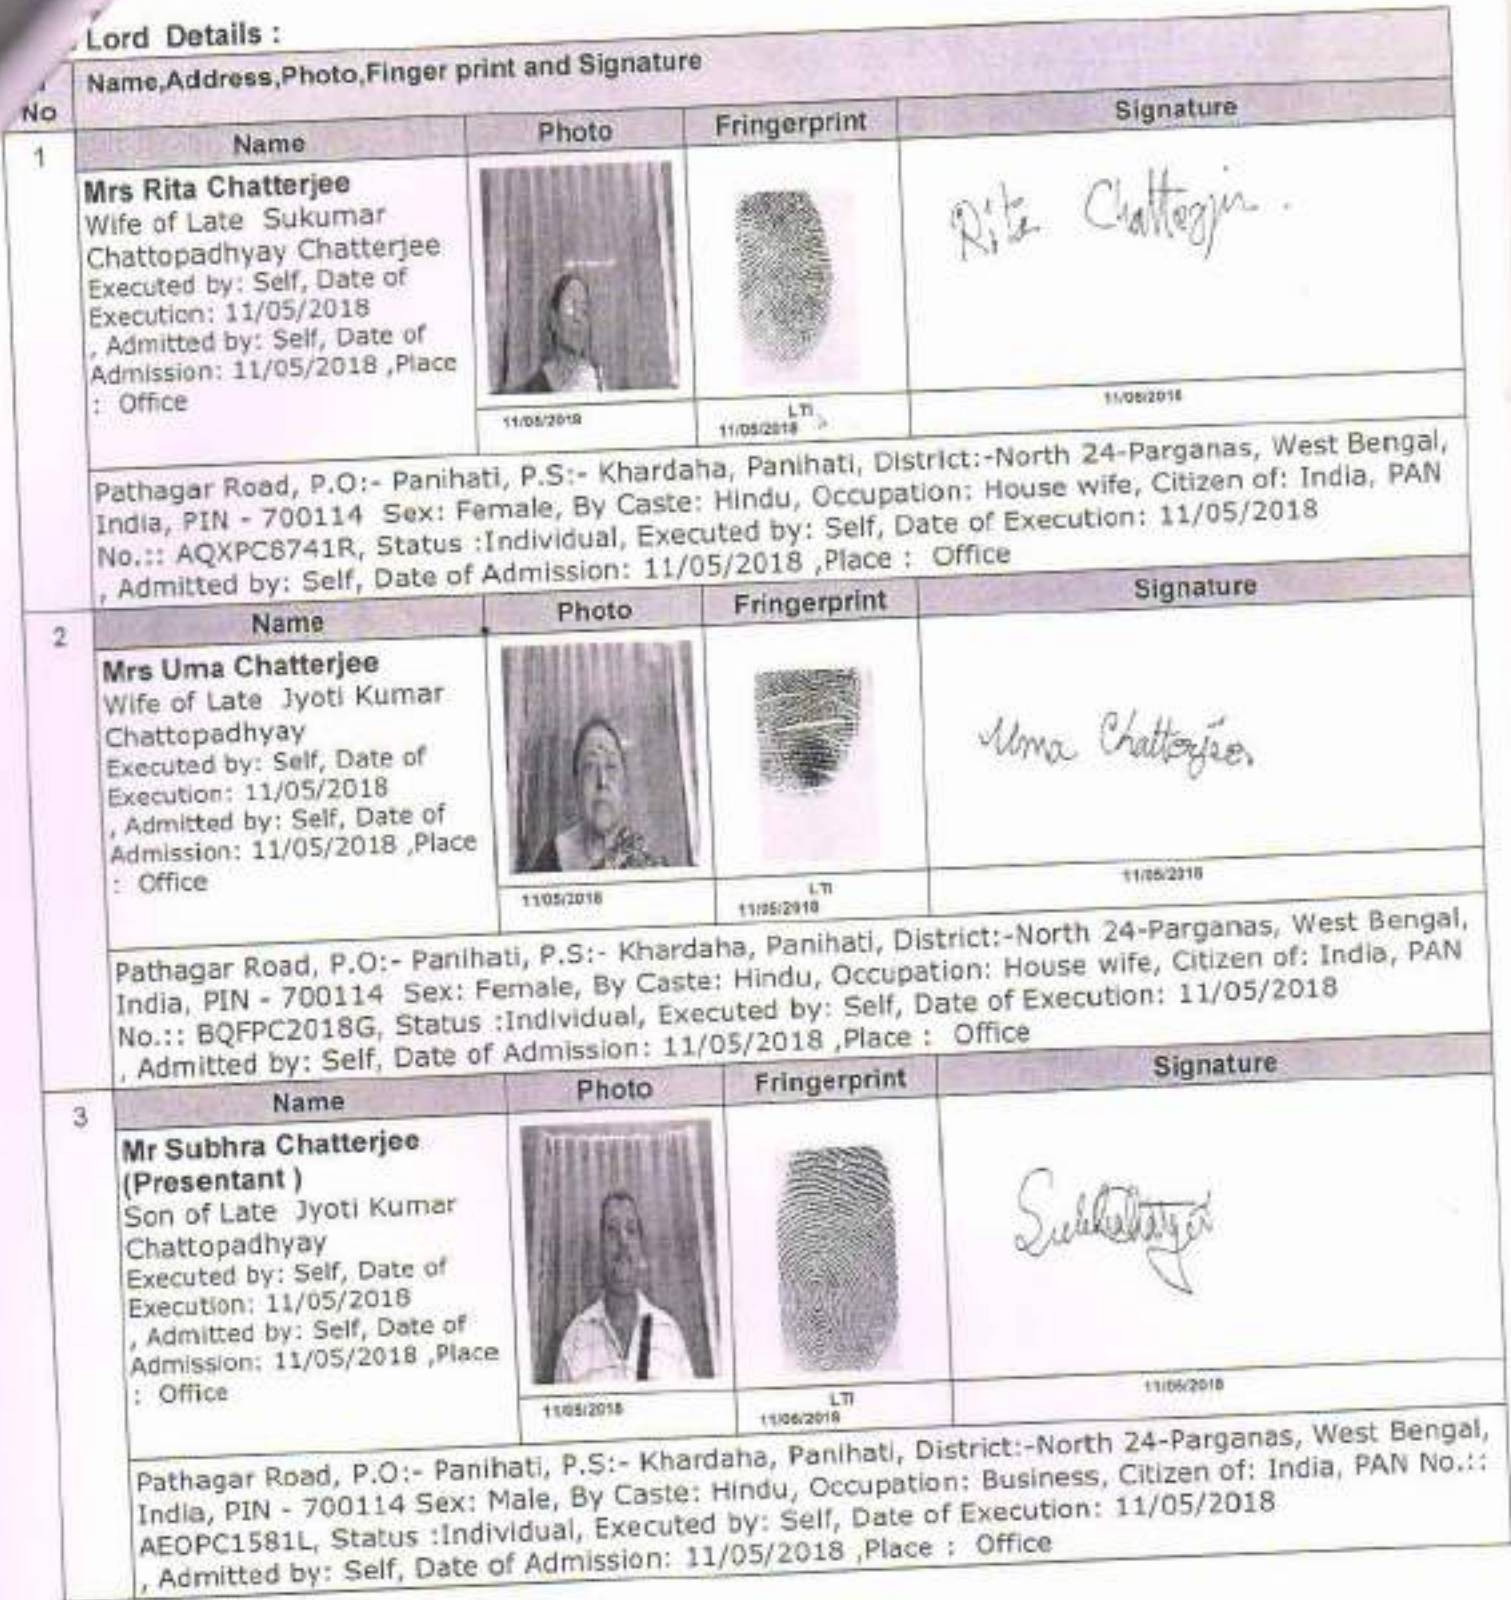 Lord Details :
No
Name,Address,Photo,Finger print and Signature
1
Name
Photo
Fringerprint
Signature
Mrs Rita Chatterjee
Wife of Late Sukumar
Chattopadhyay Chatterjee
Executed by: Self, Date of
Execution: 11/05/2018
, Admitted by: Self, Date of
Admission: 11/05/2018 ,Place
: Office
Rita Chatterjee.
11/05/2018
LTI
11/05/2018
11/05/2018
Pathagar Road, P.O:- Panihati, P.S:- Khardaha, Panihati, District:-North 24-Parganas, West Bengal,
India, PIN - 700114 Sex: Female, By Caste: Hindu, Occupation: House wife, Citizen of: India, PAN
No.:: AQXPC8741R, Status :Individual, Executed by: Self, Date of Execution: 11/05/2018
, Admitted by: Self, Date of Admission: 11/05/2018 ,Place : Office
2
Name
Photo
Fringerprint
Signature
Mrs Uma Chatterjee
Wife of Late Jyoti Kumar
Chattopadhyay
Executed by: Self, Date of
Execution: 11/05/2018
, Admitted by: Self, Date of
Admission: 11/05/2018 ,Place
: Office
Uma Chatterjee.
11/05/2018
LTI
11/05/2018
11/05/2018
Pathagar Road, P.O:- Panihati, P.S:- Khardaha, Panihati, District:-North 24-Parganas, West Bengal,
India, PIN - 700114 Sex: Female, By Caste: Hindu, Occupation: House wife, Citizen of: India, PAN
No.:: BQFPC2018G, Status :Individual, Executed by: Self, Date of Execution: 11/05/2018
, Admitted by: Self, Date of Admission: 11/05/2018 ,Place : Office
3
Name
Photo
Fringerprint
Signature
Mr Subhra Chatterjee
(Presentant )
Son of Late Jyoti Kumar
Chattopadhyay
Executed by: Self, Date of
Execution: 11/05/2018
, Admitted by: Self, Date of
Admission: 11/05/2018 ,Place
: Office
11/05/2018
LTI
11/05/2018
11/05/2018
Pathagar Road, P.O:- Panihati, P.S:- Khardaha, Panihati, District:-North 24-Parganas, West Bengal,
India, PIN - 700114 Sex: Male, By Caste: Hindu, Occupation: Business, Citizen of: India, PAN No.::
AEOPC1581L, Status :Individual, Executed by: Self, Date of Execution: 11/05/2018
, Admitted by: Self, Date of Admission: 11/05/2018 ,Place : Office